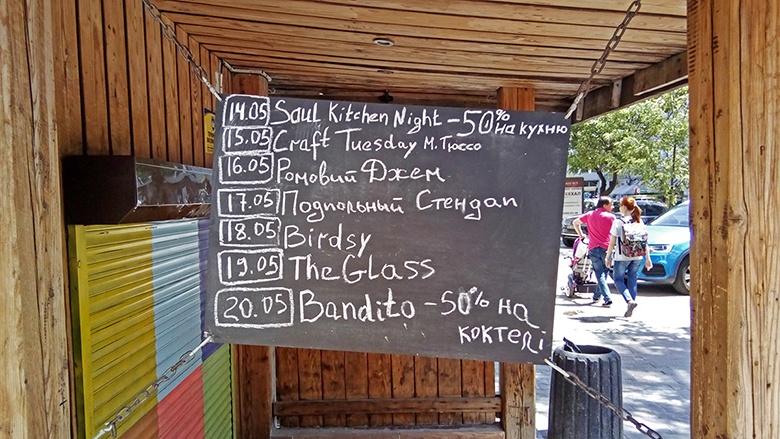 14.05 Saul Kitchen Night -50% на кухню
15.05 Craft Tuesday М. Тюссо
16.05 Ромовий Джем
17.05 Подпольный Стендап
18.05 Birdsy
19.05 The Glass
20.05 Bandito -50% на
коктелі